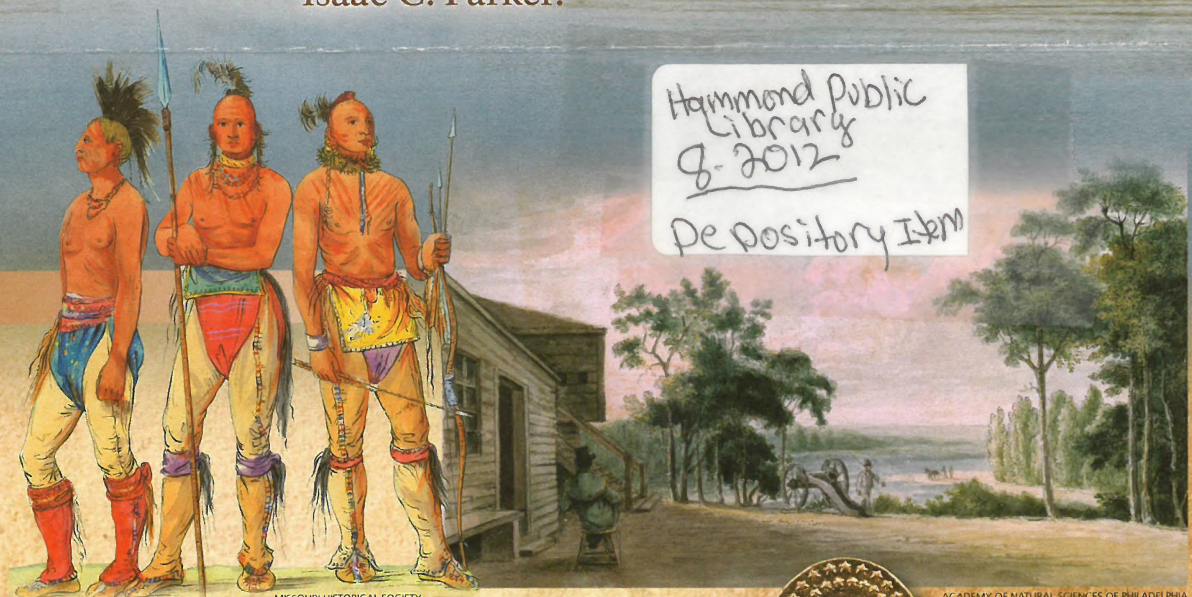 Isaac C. Parker.
Hammond Public
Library
8-2012
Depository Item
MISSOURI HISTORICAL SOCIETY
ACADEMY OF NATURAL SCIENCES OF PHILADELPHIA